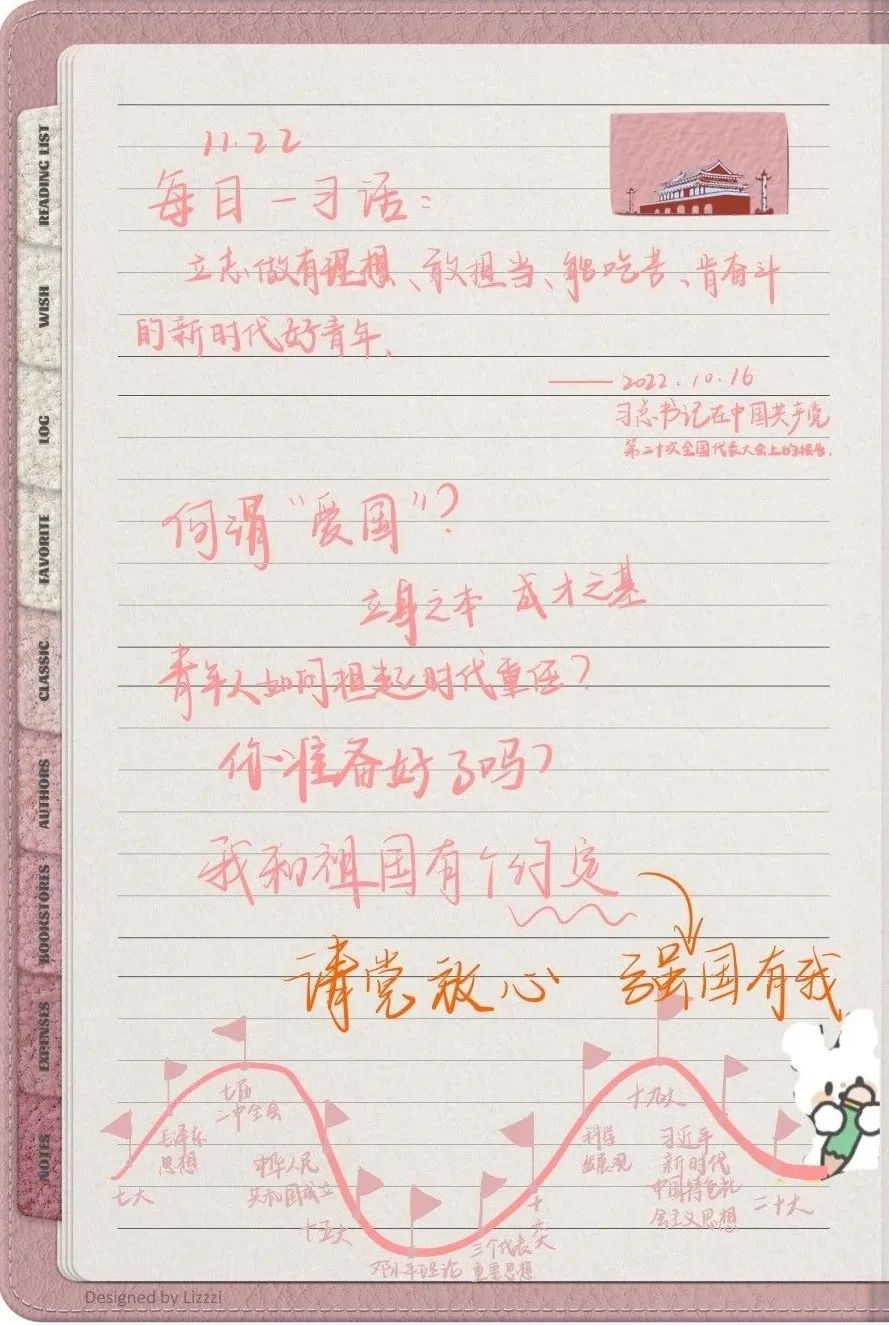 11.22
每日一习话：
立志做有理想、敢担当、能吃苦、肯奋斗
的新时代好青年、
—— 2022.10.16
习总书记在中国共产党
第二十次全国代表大会上的报告.
何谓“爱国”？
立身之本 成才之基
青年人如何担起时代重任？
你准备好了吗？
我和祖国有个约定
请党放心 强国有我
READING LIST
WISH
LOG
FAVORITE
CLASSIC
AUTHORS
BOOKSTORES
EXPENSES
NOTES
七大
毛泽东
思想
七届
二中全会
中华人民
共和国成立
十五大
邓小平理论
三个代表
重要思想
十
六大
科学
发展观
十九大
习近平
新时代
中国特色社
会主义思想
二十大
Designed by Lizzzi